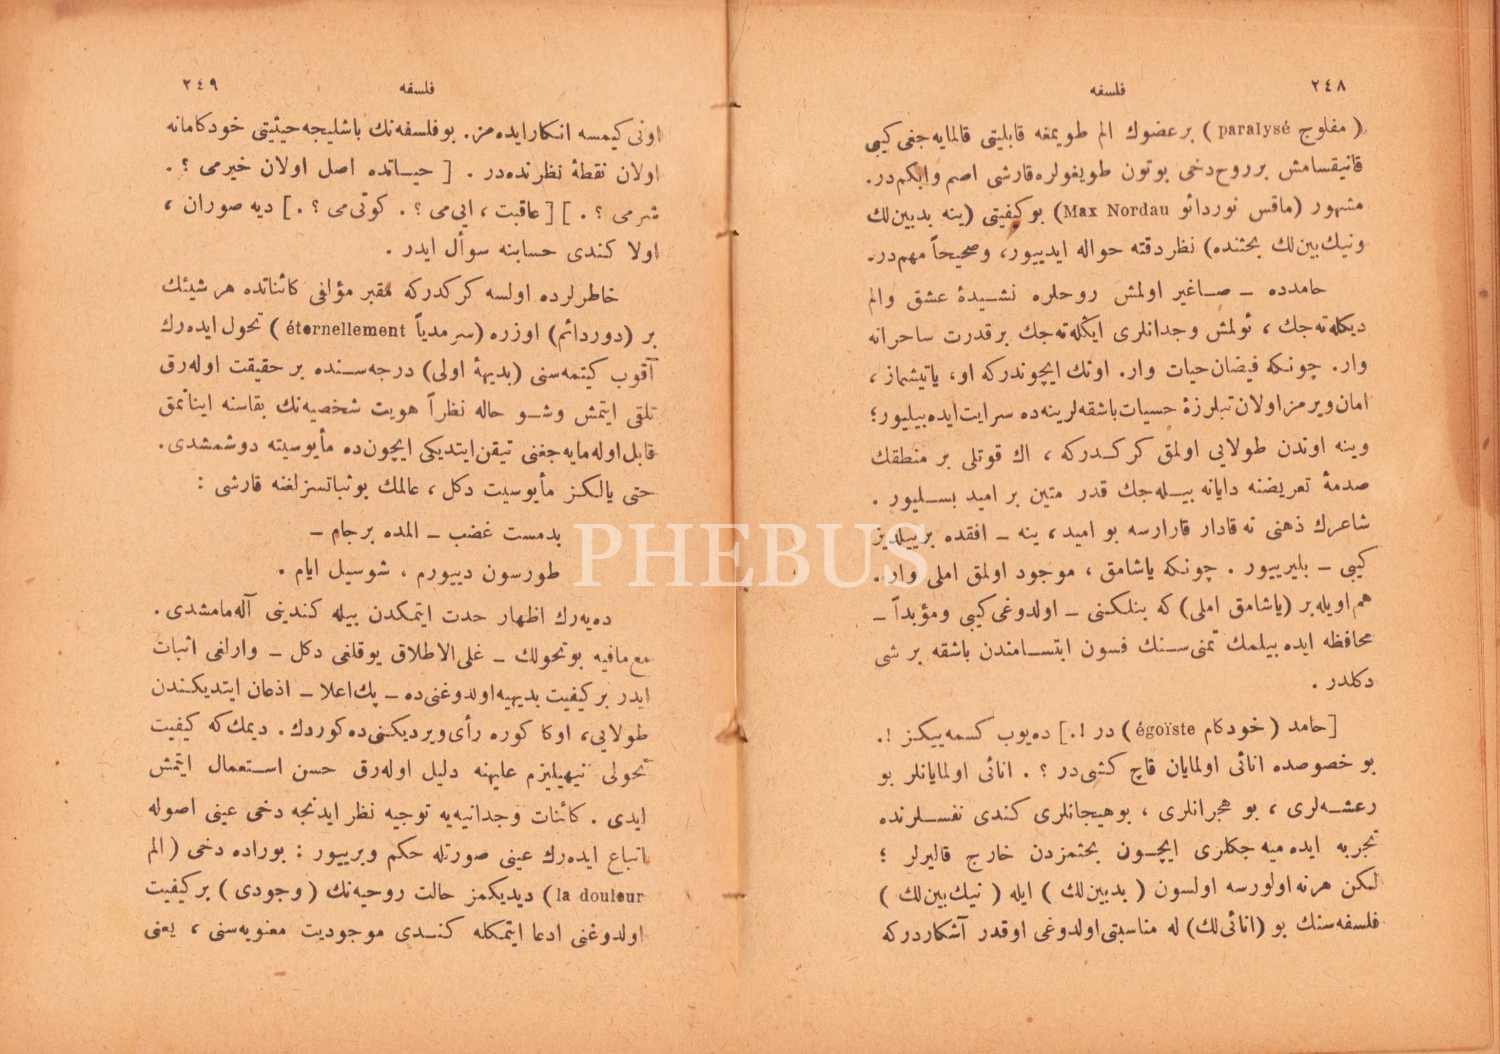 ٢٤٨
فلسفه
( مفلوج paralysé ) بر عضوك الم طویمغه قابلیتی قالمایه‌جغی كیبی
قانیقسامش برروح دخی بوتون طویغولره قارشی اصم وابكم‌در.
مشهور (ماقس نوردائو Max Nordau) بو كیفیتی (ینه بدبین‌لك
ونیك‌بین‌لك بحثنده) نظر دقته حواله ایدییور، وصحیحاً مهم‌در.
حامدده ــ صــاغیر اولمش روحلره نشــیدۀ عشق والم
دیكله‌ته‌جك ، ئولمش وجدانلری ایكله‌ته‌جك برقدرت ساحرانه
وار. چونكه فیضان حیات وار. اونك ایچوندركه او، یاتیشماز ،
امان ویرمز اولان تبلرزۀ حسیات باشقه‌لرینه‌ده سرایت ایده‌بیلیور؛
وینه اوندن طولایی اولمق كركــدركه ، اك قوتلی بر منطقك
صدمۀ تعریضنه دایانه بیــله‌جك قدر متین بر امید بســلیور .
شاعرك ذهنی نه قادار قارارسه بو امید ، ینه ــ افقده برییلدیز
كیبی ــ بلیرییور . چونكه یاشامق ، موجود اولمق املی وار .
هم اویله بر (یاشامق املی) كه بنلكنی ــ اولدوغی كیبی ومؤبداً ــ
محافظه ایده بیلمك تمنی‌ســنك فسون ابتســامندن باشقه بر شی
دكلدر .
[حامد ( خودكام égoïste ) در !.] ده‌یوب كسمه‌ییكز !.
بو خصوصده انائی اولمایان قاچ كشی‌در ؟ . انائی اولمایانلر بو
رعشــه‌لری ، بو هجرانلری ، بوهیجانلری كندی نفســلرنده
تجربه ایده‌میه‌جكلری ایچــون بحثمزدن خارج قالیرلر ؛
لكن هرنه اولورسه اولسون ( بدبین‌لك ) ایله ( نیك‌بین‌لك )
فلسفه‌سنك بو (انائی‌لك) له مناسبتی اولدوغی اوقدر آشكاردركه
٢٤٩
فلسفه
اونی كیمسه انكار ایده‌مز. بو فلسفه‌نك باشلیجه حیثیتی خودكامانه
اولان نقطۀ نظرنده‌در . [ حیــاتده اصل اولان خیرمی ؟ .
شرمی ؟ . ] [ عاقبت ، ایی‌می ؟ . كوتی‌می ؟ . ] دیه صوران ،
اولا كندی حسابنه سوأل ایدر .
خاطرلرده اولسه كركدركه مقبر مؤلفی كائناتده هر شیئك
بر (دوردائم) اوزره (سرمدیاً éternellement ) تحول ایده‌رك
آقوب كیتمه‌سنی (بدیهۀ اولی) درجه‌ســنده بر حقیقت اوله‌رق
تلقی ایتمش وشــو حاله نظراً هویت شخصیه‌نك بقاسنه اینانمق
قابل اوله‌مایه‌جغنی تیقن ایتدیكی ایچون‌ده مأیوسیته دوشمشدی.
حتی یالكز مأیوسیت دكل ، عالمك بوثباتسزلغنه قارشی :
بدمست غضب ــ المده برجام ــ
طورسون دییورم ، شوسیل ایام .
ده‌یه‌رك اظهار حدت ایتمكدن بیله كندینی آله‌مامشدی .
مع‌مافیه بوتحولك ــ علی‌الاطلاق یوقلغی دكل ــ وارلغی اثبات
ایدر بر كیفیت بدیهیه اولدوغنی‌ده ــ پك اعلا ــ اذعان ایتدیكــندن
طولایی، اوكا كوره رأی ویردیكنی‌ده كوردك . دیمك كه كیفیت
تحولی نیهیلیزم علیهنه دلیل اوله‌رق حسن اســتعمال ایتمش
ایدی . كائنات وجدانیه‌یه توجیه نظر ایدنجه دخی عینی اصوله
اتباع ایده‌رك عینی صورتله حكم ویرییور : بوراده دخی (الم
la douleur) دیدیكمز حالت روحیه‌نك ( وجودی ) بر كیفیت
اولدوغنی ادعا ایتمكله كنــدی موجودیت معنویه‌سنی ، یعنی
PHEBUS